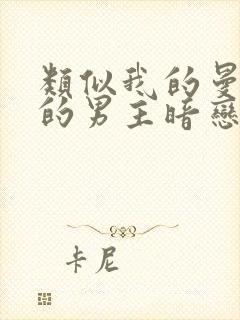 類似我的曼
的男主暗戀
卡尼